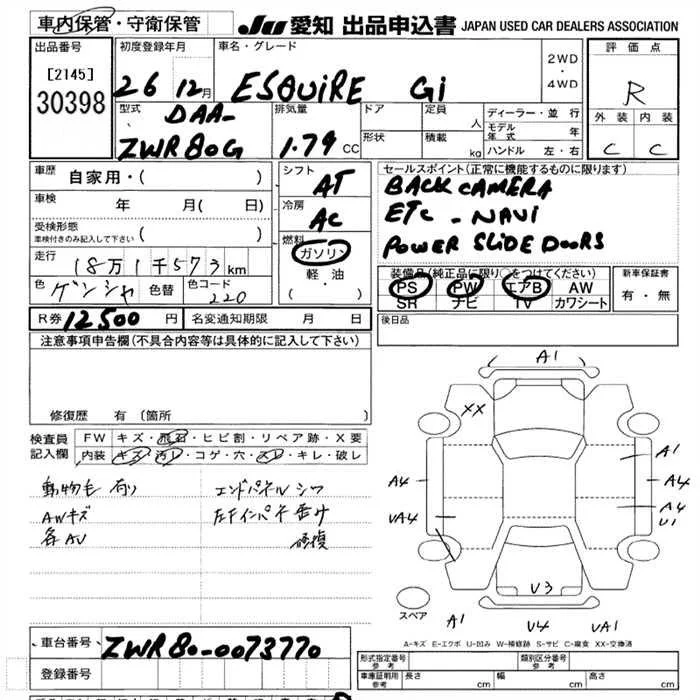 車内保管・守衛保管 JU 愛知 出品申込書 JAPAN USED CAR DEALERS ASSOCIATION
出品番号 [2145] 30398
初度登録年月 26 12月
車名・グレード ESQUIRE Gi
2WD ・ 4WD
評価点 R
外装 内装
C C
型式 DAA-ZWR80G
排気量 1.79 CC
ドア 定員 人
形状 積載 kg
ディーラー・並行
モデル年式 年
ハンドル 左・右
車歴 自家用・( )
車検 年 月( 日)
受検形態 車検付きのみ記入して下さい ( )
走行 18万1千573km
色 ゲンシャ 色替 色コード 220
シフト AT
冷房 AC
燃料 ガソリン
軽・油
( ・ )
セールスポイント(正常に機能するものに限ります)
BACK CAMERA
ETC - NAVI
POWER SLIDE DOORS
装備品(純正品に限り○をつけてください)
PS PW エアB AW
SR ナビ TV カワシート
新車保証書
有・無
R券 12500 円 名変通知期限 月 日
後日品
注意事項申告欄(不具合内容等は具体的に記入して下さい)
修復歴 有 (箇所
検査員記入欄
FW キズ・飛石・ヒビ割・リペア跡・X要
内装 キズ・汚レ・コゲ・穴・スレ・キレ・破レ
動物毛 有り
AWキズ
各AU
エンドパネル シワ
修復
A1
XX
A1
A4
A4
A4
U1
UA4
V3
スペア
A1
U4
UA1
A-キズ E-エクボ U-凹み W-補修跡 S-サビ C-腐食 XX-交換済
車台番号 ZWR80-0073770
登録番号
形式指定番号 参考
類別区分番号 参考
車庫証明用 参考 長さ cm 幅 cm 高さ cm